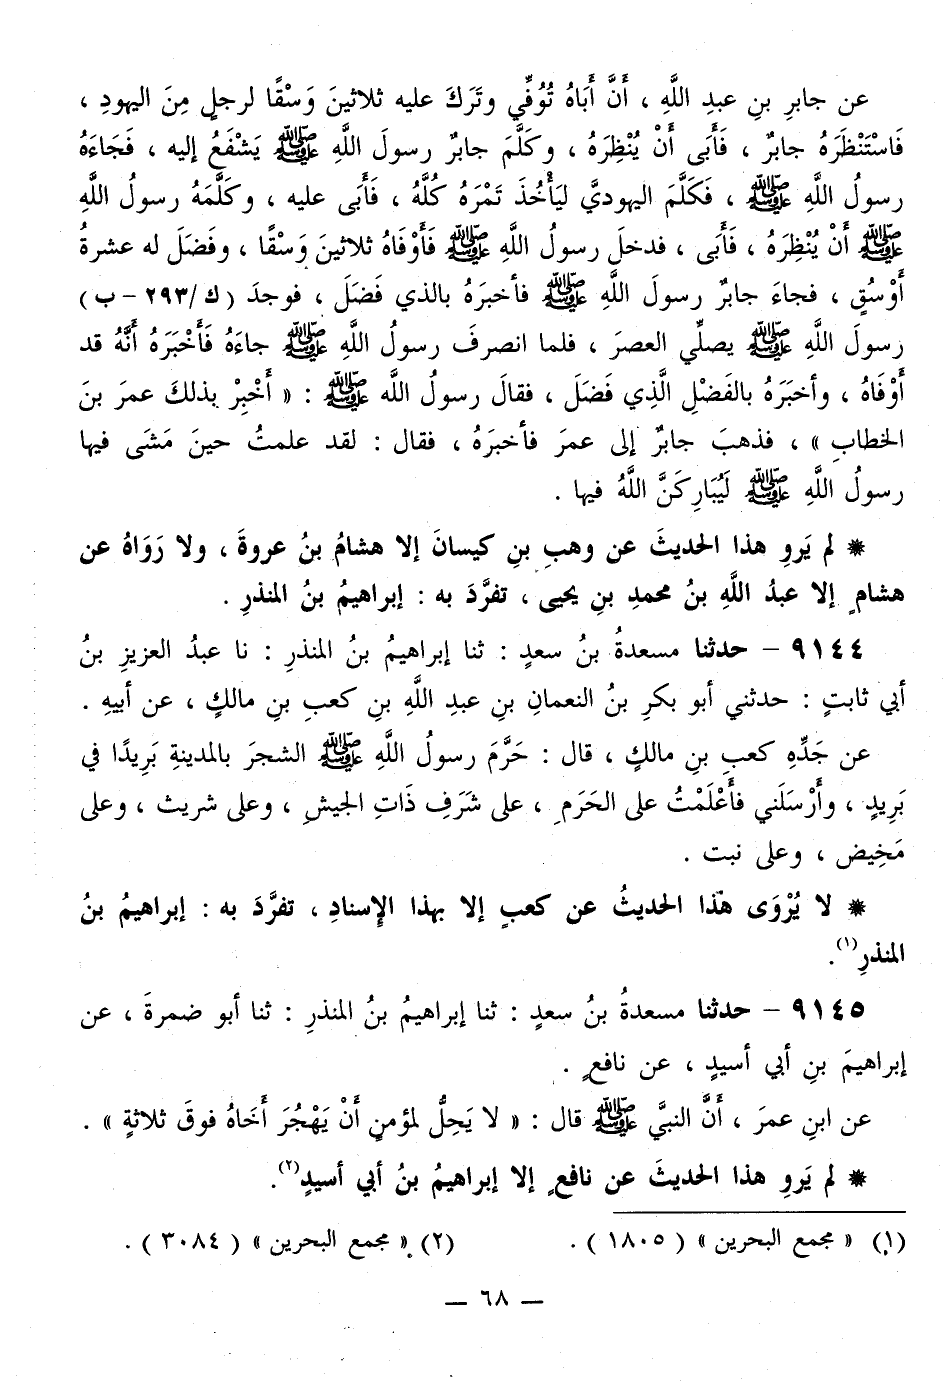 عن جابرِ بنِ عبدِ اللَّهِ ، أَنَّ أَبَاهُ تُوُفِّي وتَرَكَ عليه ثلاثينَ وَسْقًا لرجلٍ مِنَ اليهودِ ،
فَاسْتَنْظَرَهُ جابرٌ ، فَأَبَى أَنْ يُنْظِرَهُ ، وكَلَّمَ جابرٌ رسولَ اللَّهِ ﷺ يَشْفَعُ إليه ، فَجَاءَهُ
رسولُ اللَّهِ ﷺ ، فَكَلَّمَ اليهوديَّ ليَأْخُذَ تَمْرَهُ كُلَّهُ ، فَأَبَى عليه ، وكَلَّمَهُ رسولُ اللَّهِ
ﷺ أَنْ يُنْظِرَهُ ، فَأَبَى ، فدخلَ رسولُ اللَّهِ ﷺ فَأَوْفَاهُ ثلاثينَ وَسْقًا ، وفَضَلَ له عشرةُ
أَوْسُقٍ ، فجاءَ جابرٌ رسولَ اللَّهِ ﷺ فأخبرَهُ بالذي فَضَلَ ، فوجدَ ( ك/٢٩٣ - ب )
رسولَ اللَّهِ ﷺ يصلِّي العصرَ ، فلما انصرفَ رسولُ اللَّهِ ﷺ جاءَهُ فَأَخْبَرَهُ أَنَّهُ قد
أَوْفَاهُ ، وأخبَرَهُ بالفَضْلِ الَّذِي فَضَلَ ، فقالَ رسولُ اللَّه ﷺ : « أَخْبِرْ بذلكَ عمرَ بنَ
الخطابِ » ، فذهبَ جابرٌ إلى عمرَ فأخبرَهُ ، فقال : لقد علمتُ حينَ مَشَى فيها
رسولُ اللَّهِ ﷺ لَيُبَارِكَنَّ اللَّهُ فيها .
* لم يَروِ هذا الحديثَ عن وهبِ بنِ كيسانَ إلا هشامُ بنُ عروةَ ، ولا رَوَاهُ عن
هشامٍ إلا عبدُ اللَّهِ بنُ محمدِ بنِ يحيى ، تفرَّدَ به : إبراهيمُ بنُ المنذرِ .
٩١٤٤ - حدثنا مسعدةُ بنُ سعدٍ : ثنا إبراهيمُ بنُ المنذرِ : نا عبدُ العزيزِ بنُ
أبي ثابتٍ : حدثني أبو بكرِ بنُ النعمانِ بنِ عبدِ اللَّهِ بنِ كعبِ بنِ مالكٍ ، عن أبيهِ .
عن جَدِّهِ كعبِ بنِ مالكٍ ، قال : حَرَّمَ رسولُ اللَّهِ ﷺ الشجرَ بالمدينةِ بَرِيدًا في
بَرِيدٍ ، وأَرْسَلَني فأَعْلَمْتُ على الحَرَمِ ، على شَرَفِ ذَاتِ الجيشِ ، وعلى شريث ، وعلى
مَخِيض ، وعلى نبت .
* لا يُرْوَى هذا الحديثُ عن كعبٍ إلا بهذا الإسنادِ ، تفرَّدَ به : إبراهيمُ بنُ
المنذرِ(١).
٩١٤٥ - حدثنا مسعدةُ بنُ سعدٍ : ثنا إبراهيمُ بنُ المنذرِ : ثنا أبو ضمرةَ ، عن
إبراهيمَ بنِ أبي أسيدٍ ، عن نافعٍ .
عن ابنِ عمرَ ، أَنَّ النبيَّ ﷺ قال : « لا يَحِلُّ لمؤمنٍ أَنْ يَهْجُرَ أَخَاهُ فوقَ ثلاثةٍ » .
* لم يَروِ هذا الحديثَ عن نافعٍ إلا إبراهيمُ بنُ أبي أسيدٍ(٢).
(١) « مجمع البحرين » ( ١٨٠٥ ) . (٢) « مجمع البحرين » ( ٣٠٨٤ ) .
— ٦٨ —